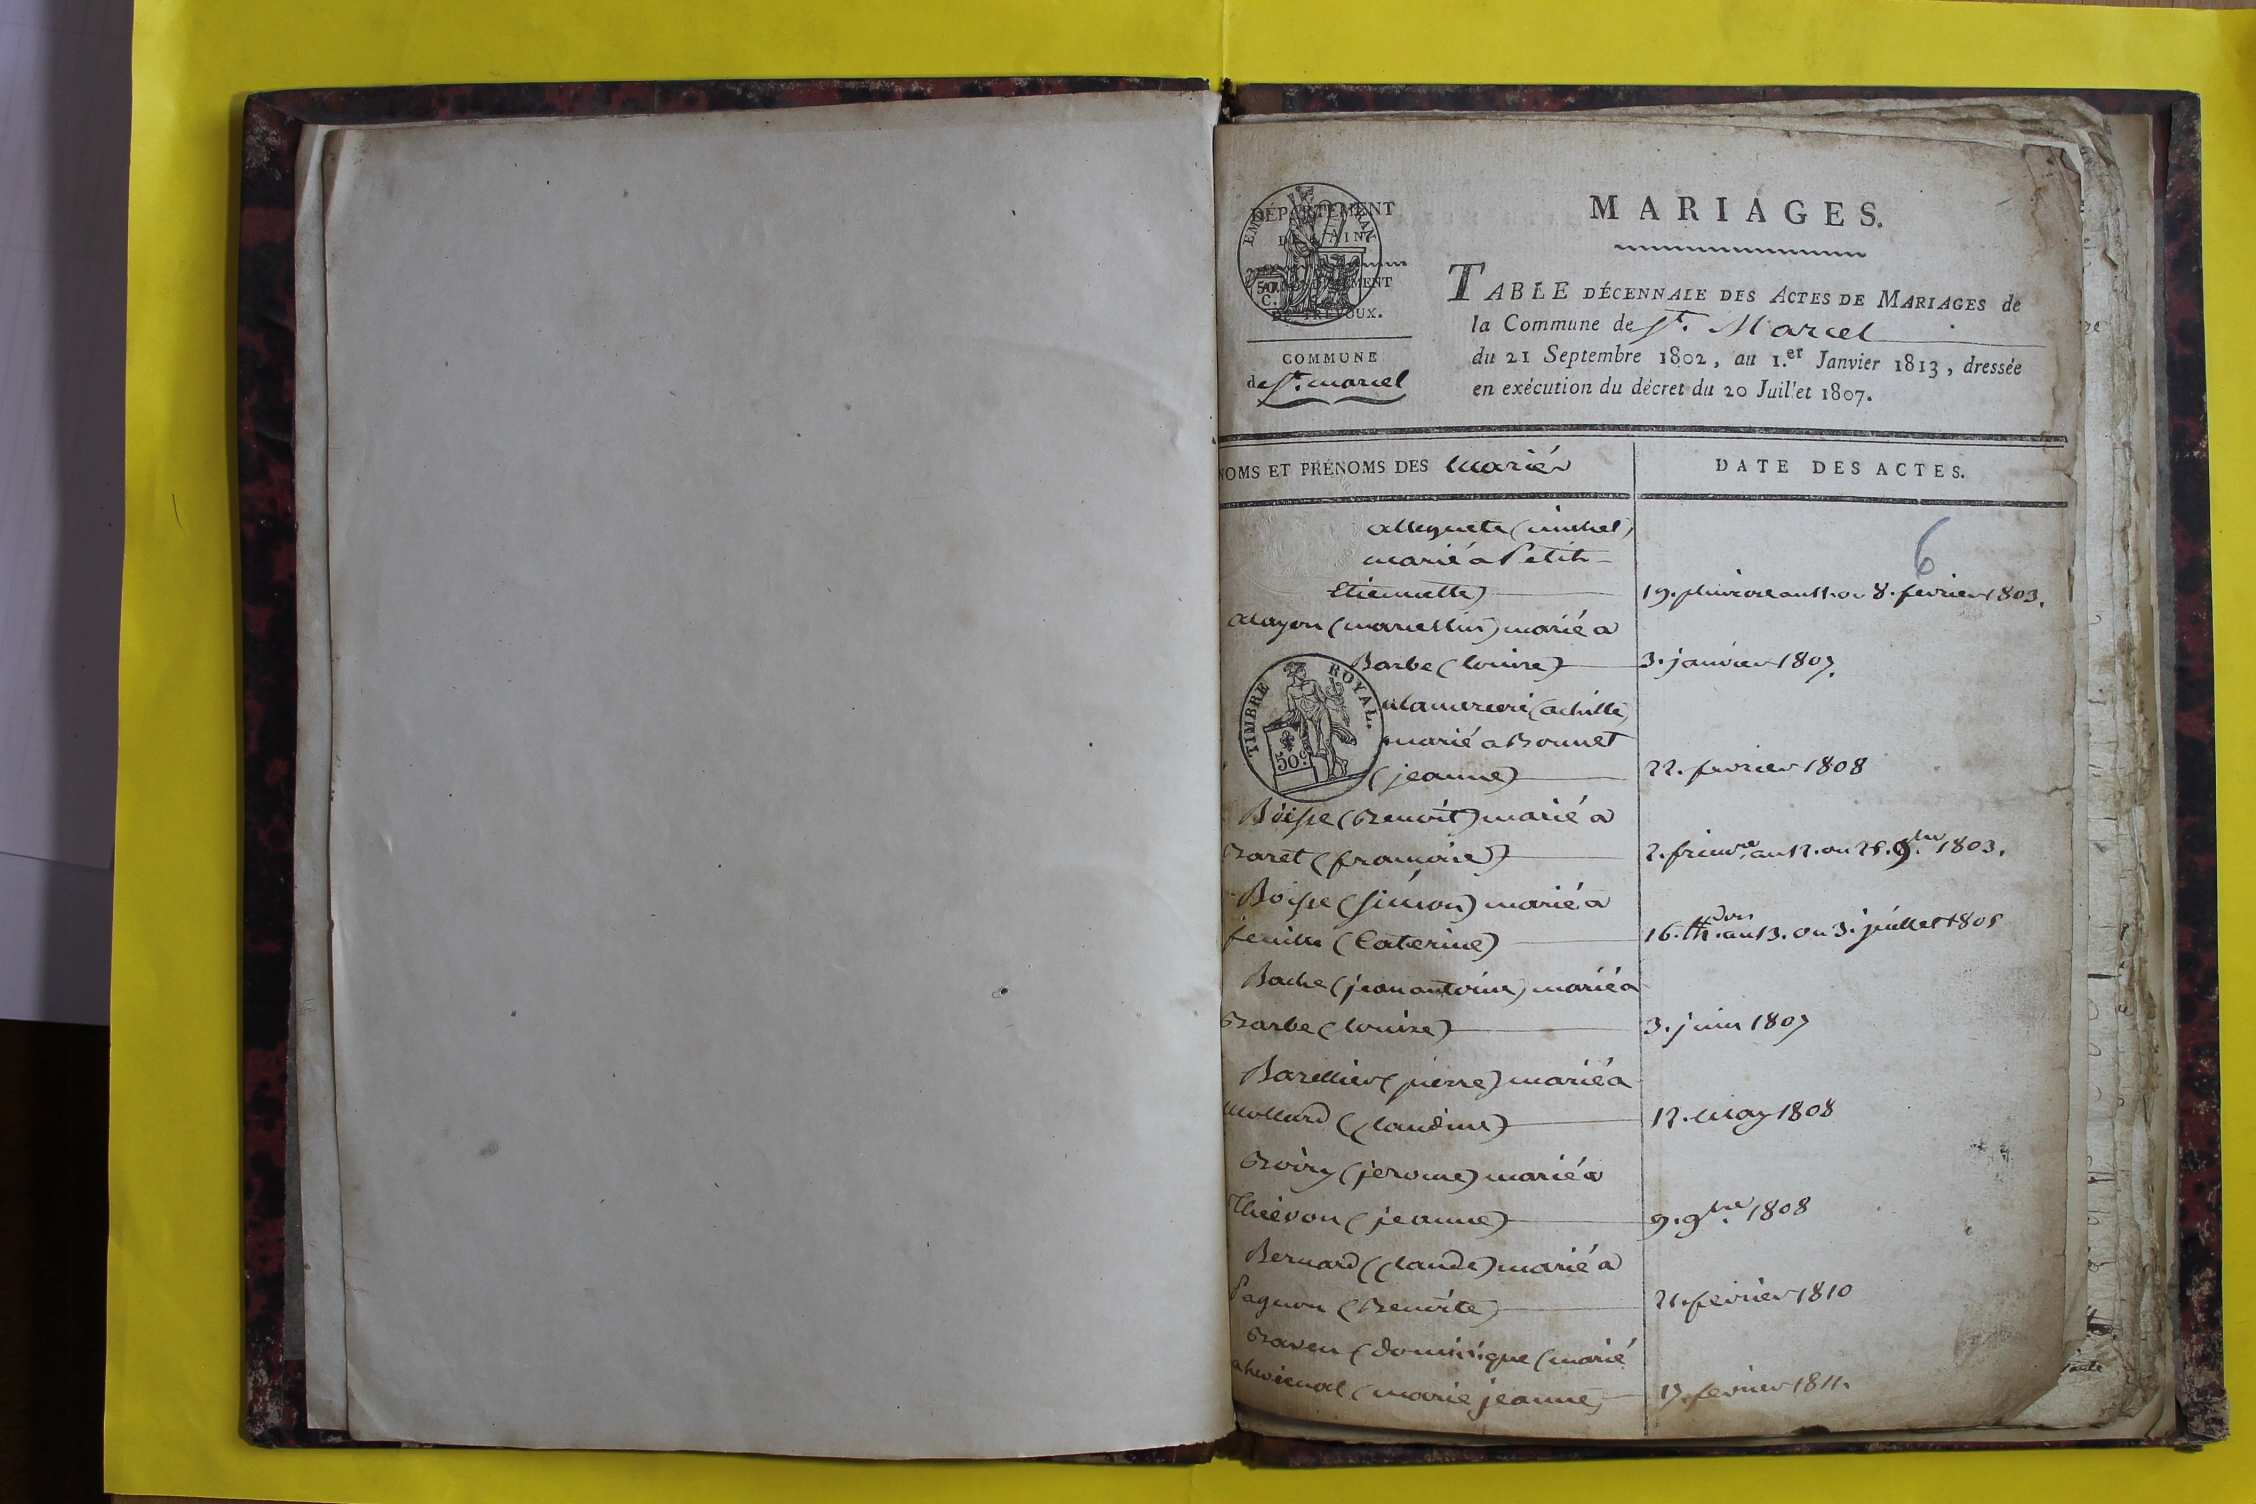 DÉPARTEMENT
DE L'AIN
EMP. FRAN.
50 C.
ARRONDISSEMENT
DE TRÉVOUX.
COMMUNE
de St. marcel
MARIAGES.
TABLE DÉCENNALE DES ACTES DE MARIAGES de
la Commune de St. Marcel
du 21 Septembre 1802, au 1.er Janvier 1813, dressée
en exécution du décret du 20 Juillet 1807.
NOMS ET PRÉNOMS DES Mariés
DATE DES ACTES.
6
(michel)
marié a Petit
Etiennette) 19. pluviose an 11. ou 8. fevrier 1803.
(marcellin) marié a
Barbe (louise) 3. janvier 1807.
TIMBRE ROYAL.
50c
(achille)
marié a Bonnet
(jeanne) 22. fevrier 1808
Boisse (Benoit) marié a
Baret (francoise) 2. frimre. an 12. ou 25. 9bre 1803.
Boisse (simon) marié a
(Caterine) 16. an 13. ou 3. juillet 1805
Bache (jean antoine) marié a
Barbe (louise) 3. juin 1807
Barellier (pierre) marié a
Mollard (Claudine) 12. may 1808
Boiry (jerome) marié a
Thiévon (jeanne) 9. 9bre 1808
Bernard (Claude) marié a
Pagnon (Benoite) 21. fevrier 1810
(dominique (marié
a (marie jeanne) 19. fevrier 1811.